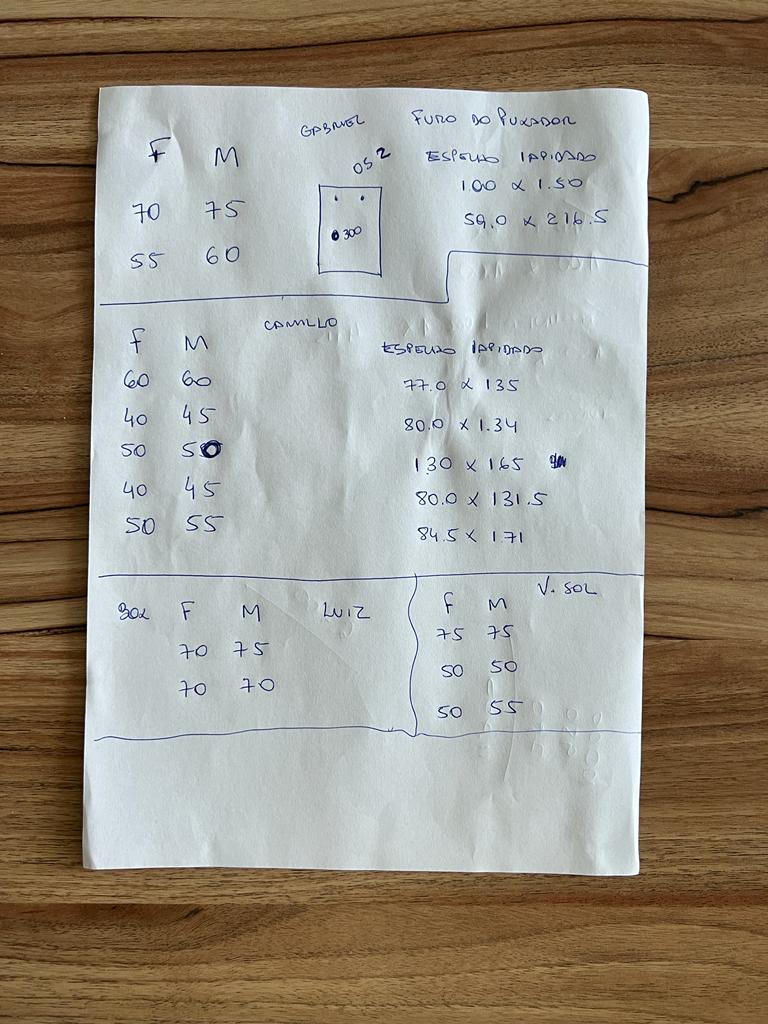 GABRIEL
FURO DO PUXADOR
F M
OS 2
ESPELHO LAPIDADO
70 75
100 x 1.50
300
59.0 x 216.5
55 60
CAMILLO
F M
ESPELHO LAPIDADO
60 60
77.0 x 135
40 45
80.0 x 1.34
50 50
130 x 165
40 45
80.0 x 131.5
50 55
84.5 x 1.71
BOX F M LUIZ
70 75
70 70
V. SOL
F M
75 75
50 50
50 55